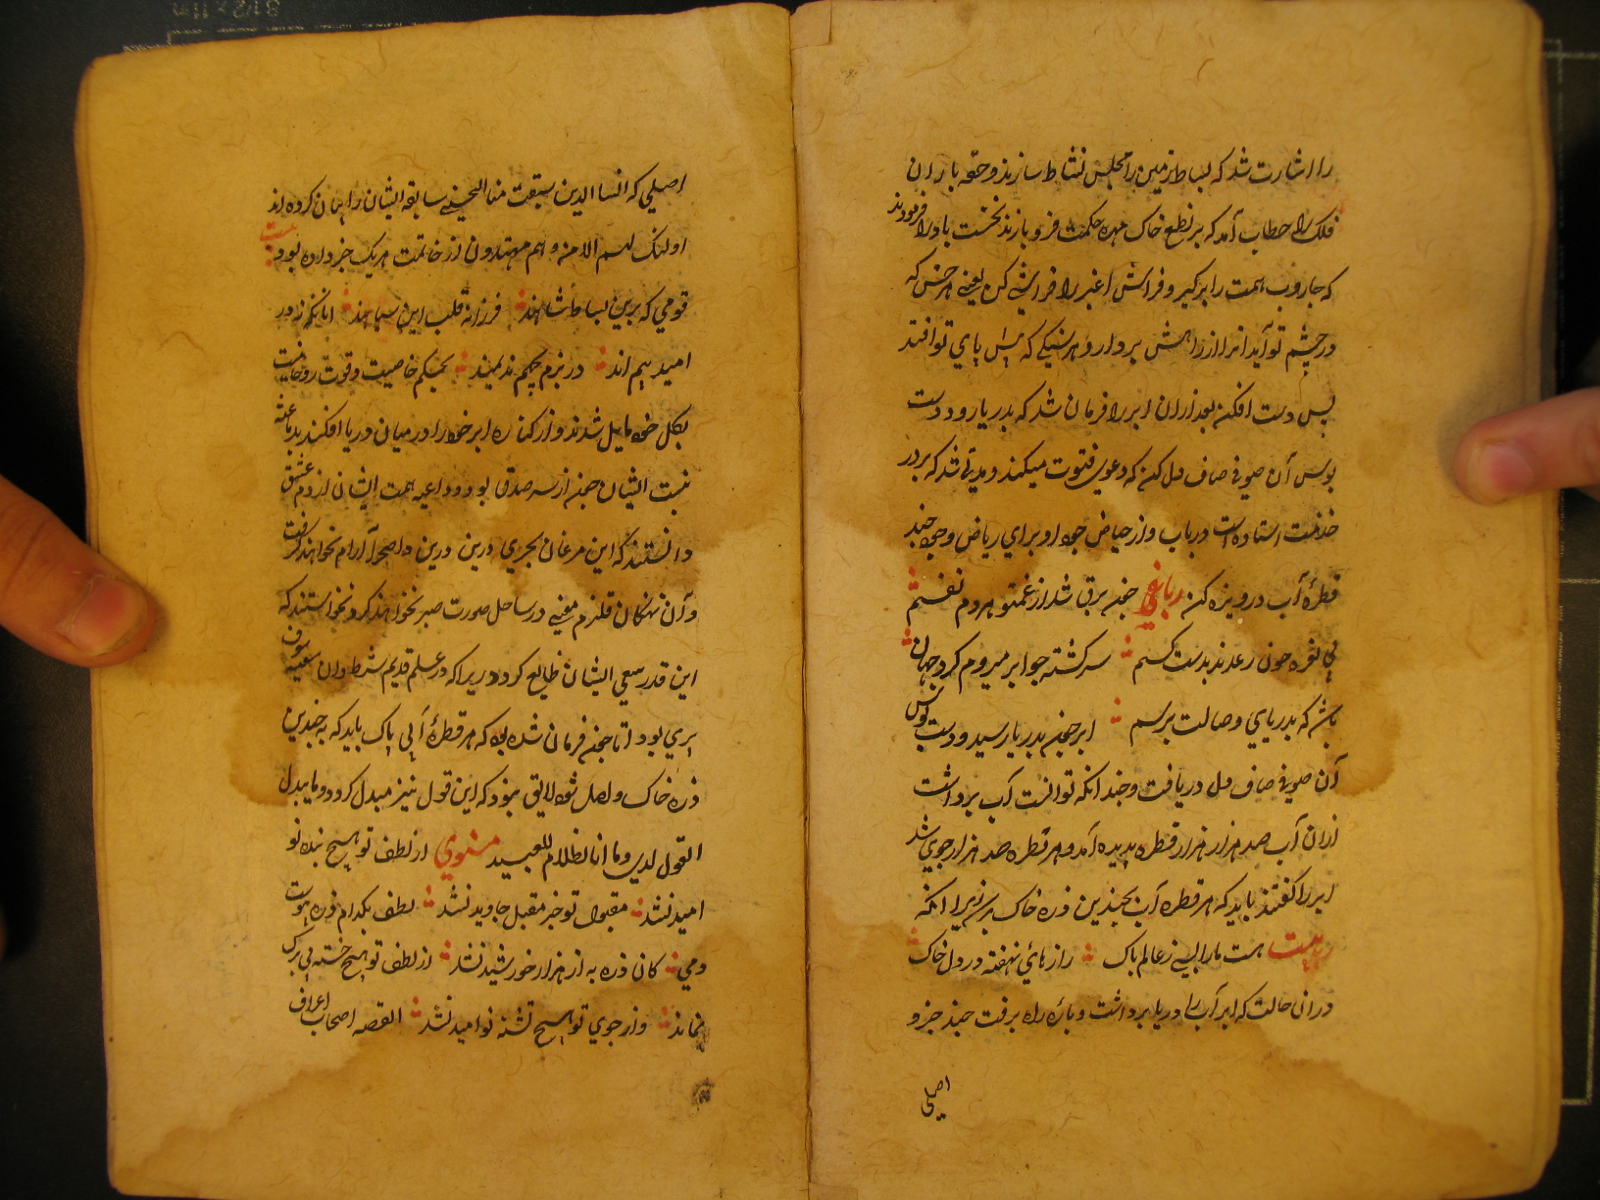 را اشارت شد که بساط زمین را مجلس نشاط سازند و حقه بازان
فلک را خطاب آمد که بر نطع خاک مهره حکمت فرو بازند نخست باد را فرمودند
که جاروب همت را برگیر و فراش اغبر را فراشی کن یعنی هر خس که
در چشم تو آید انرا از راهش بردار و هر سنگی که پیش پای تو افتد
پس دست افکن بعد ازان ابر را فرمان شد که بدریا رو و دست
بوس آن صوفی صاف دل کن که دعوی فتوت میکند و مدتی شد که بر در
خدمت استاده است دریاب و از حیاض جود او برای ریاض وجود چند
قطرهٔ آب دریوزه کن رباعی چون برق شد از غم تو هر دم نفسم
بی نعره چون رعد ندیدست کسم سرگشته چو ابر میروم گرد جهان
باشد که بدریای وصالت برسم ابر چون بدریا رسید و دست بوس
آن صوفی صاف دل دریافت و چندانکه توانست آب برداشت
ازان آب صد هزار هزار قطره پدیده آمد و هر قطره صد هزار جوی شد
ابر را گفتند باید که هر قطره آب بچندین ذره خاک برسد زیرا آنکه
بیت هست ما را بسی ز عالم پاک رازهای نهفته در دل خاک
دران حالت که ابر آب را از دریا برداشت و پاره راه برفت چند جزو
اصلی
اصلی که ان الذین سبقت منا الحسنی سابقه ایشان را بیان کرده اند
اولئک لهم الامن و هم مهتدون از خاتمت هر یک خبر داده بود بیت
قومی که برین بساط شاهند فرزانه قلب این سپاهند آنانکه نه در
امید بیم اند در بزم چکم ندیمند بحکم خاصیت و قوت روحانیت
بکل خود مایل شدند و از کناره ابر خود را در میان دریا افکند بدیاعثه
نیت ایشان چون از سر صدق بود و داعیه همت ایشان از دم عشق
دانستند که این مرغان بحری درین درین ده صحرا آرام نخواهند گرفت
و آن نهنکان قلزم معنی در ساحل صورت صبر نخواهند کرد و نخواستند که
این قدر سعی ایشان ضایع کردد زیرا که در علم قدیم شرط وان سعیه سوف
یری بود اما چون فرمان شده بود که هر قطرهٔ آبی پاک باید که به چندین
ذره خاک واصل شود لایق نبود که این قول نیز مبدل کردد و ما یبدل
القول لدی و ما انا بظلام للعبید مثنوی از لطف تو هیچ بنده نو
امید نشد مقبول تو جز مقبل جاوید نشد لطف بکدام ذره پیوست
دمی کان ذره به از هزار خورشید نشد از لطف تو هیچ خسته بی برک
نماند و از جوی تو هیچ تشنه نوامید نشد القصه اصحاب اعراف